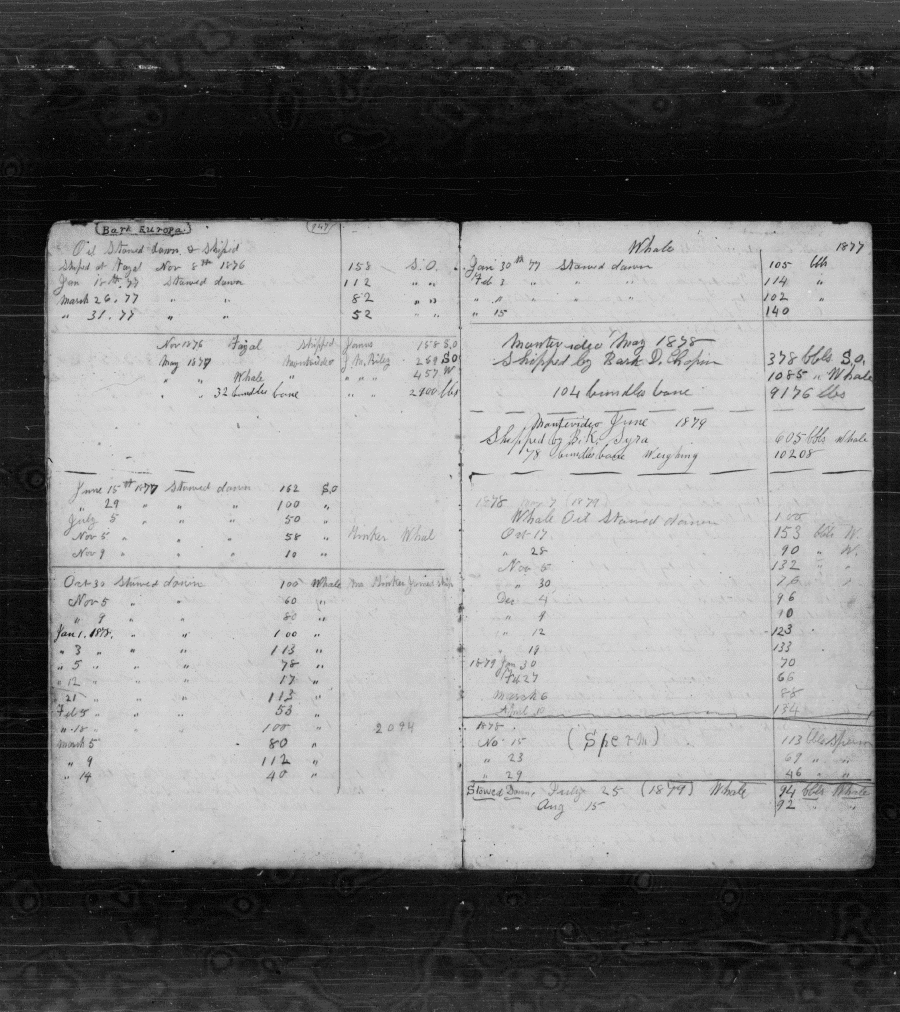 Bark Europa.
Oil Stowed down & Shiped
Shiped at Fayal Nov 8th 1876 158 S.O.
Jan 18th. 77 Stowed down 112 " "
March 26, 77 " " 82 " "
" 31. 77 " " 52 " "
Nov 1876 Fayal Shipped 158 S.O
May 1877 Montevideo 269 S.O
" " Whale " " " 457 W
" " 32 bundles bone " " 2400 lbs
June 15th 1877 Stowed down 162 S.O
" 29 " " " 100 "
July 5 " " 50 "
Nov 5 " " " 58 "
Nov 9 " " " 10 "
Oct 30 Stowed down 100 Whale
Nov 5 " " 60 "
" 9 " " 80 "
Jan 1. 1878. " " 100 "
" 3 " " 113 "
" 5 " " 78 "
" 12 " " 17 "
" 21 " " 113 "
Feb 5 " " 53 "
" 10 " " 100 " 2094
March 5 80 "
" 9 112 "
" 14 40 "
Whale 1877
Jan 30th 77 Stowed down 105 bbls
Feb 2 " " " " 114 "
" " " " " 102 "
" 15 140
Montevideo May 1878
Shipped by Bark D. Chapin 378 bbls S.O.
1085 " Whale
104 bundles bone 9176 lbs
Montevideo June 1879
Shipped by B.K. Syra 605 bbls Whale
78 bundles bone Weighing 10208
1878 (1879)
Whale Oil Stowed down 100
Oct 17 153 bbls W.
" 28 90 " W.
Nov 5 132 " "
" 30 76 "
Dec 4 96
" 9 90
" 12 123
" 19 133
1879 Jan 30 70
Feb 27 66
March 6 88
April 8 134
1878
No 15 (Sperm) 113 bbls Sperm
" 23 69 " "
" 29 46 " "
Stowed Down, July 25 (1879) Whale 94 bbls Whale
Aug 15 92 " "